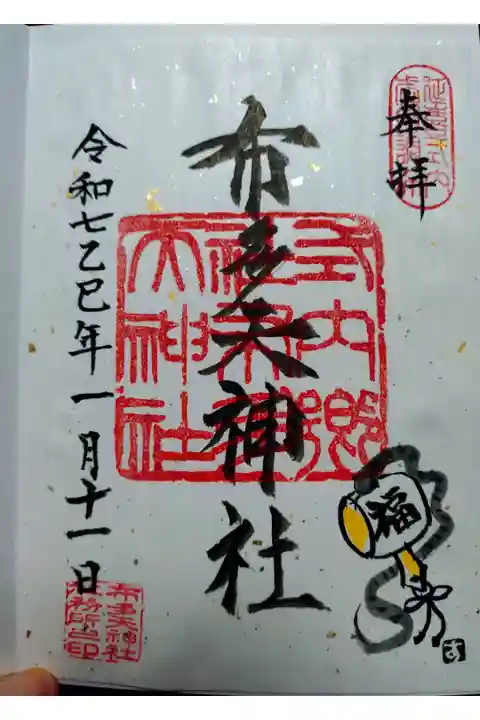 奉拝
布多天神社
式内郷
社布多
天神社
令和七乙巳年一月十一日
布多天神社
社務所之印
福